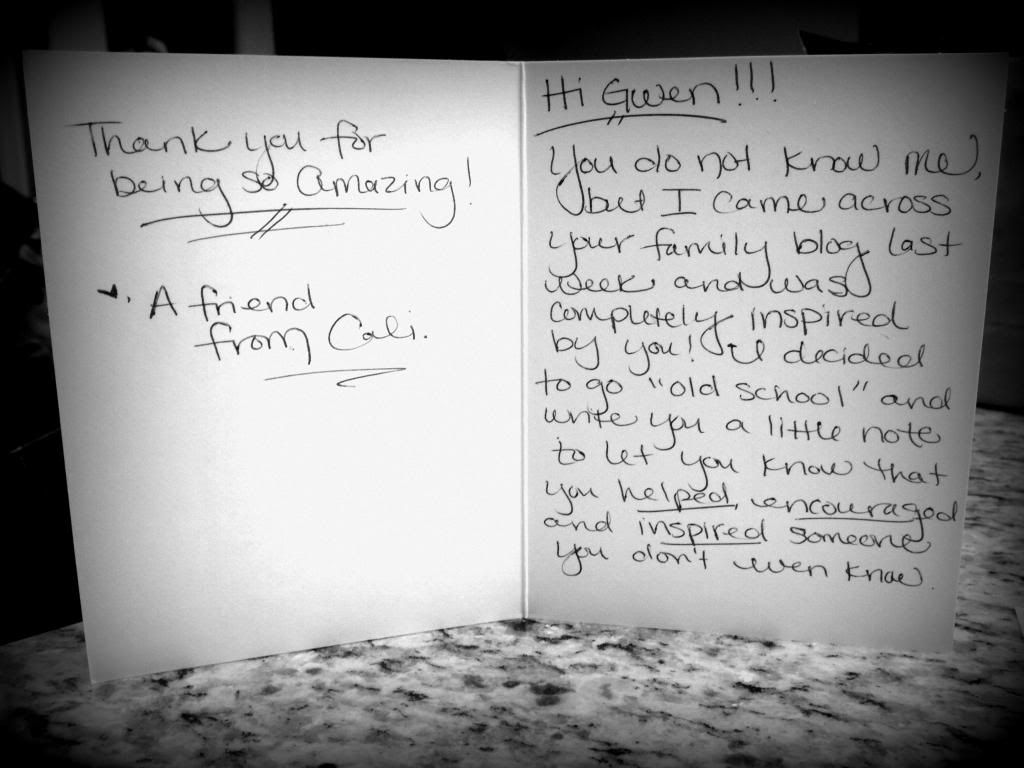 Thank you for
being so amazing!
♥. A friend
from Cali.
Hi Gwen!!!
You do not know me,
but I came across
your family blog last
week and was
completely inspired
by you! I decided
to go "old school" and
write you a little note
to let you know that
you helped, encouraged
and inspired someone
you don't even know.